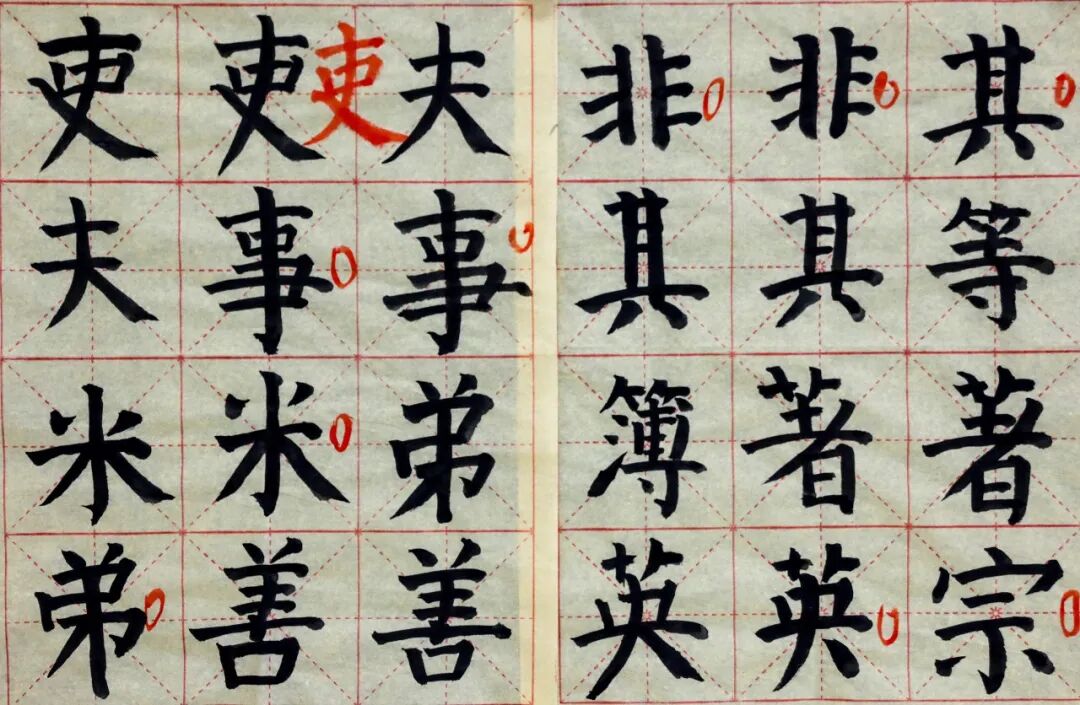 吏吏吏夫
夫事事
米米弟
弟善善
非非其
其其等
簿著著
英英宗